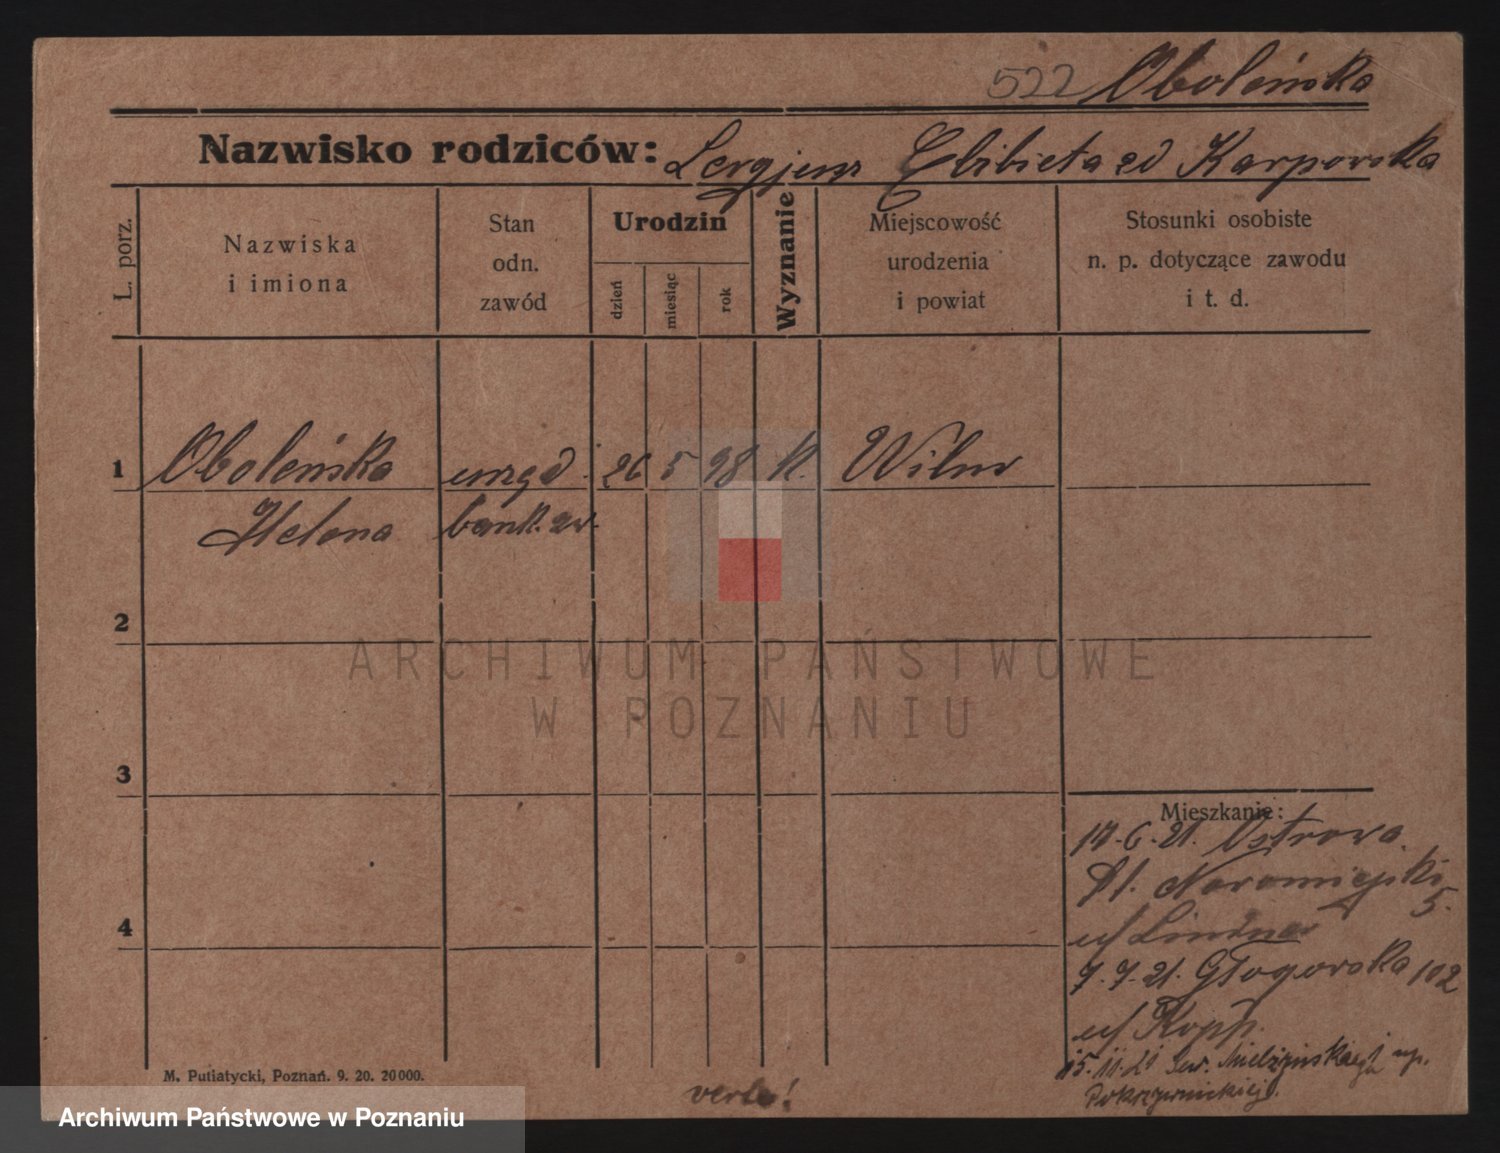 522 Oboleńska
Nazwisko rodziców: Elżbieta zd Karpowska
L. porz.
Nazwiska
i imiona
Stan
odn.
zawód
Urodzin
dzień
miesiąc
rok
Wyznanie
Miejscowość
urodzenia
i powiat
Stosunki osobiste
n. p. dotyczące zawodu
i t. d.
1 Oboleńska urzęd. 26 5 98 k. Wilno
Helena bank.
2
ARCHIWUM PAŃSTWOWE
W POZNANIU
3
Mieszkanie:
17.6.21. Ostrowa.
Pl. Nowomiejski
5.
4
u/ Lindner
7.7.21. Głogowska 102
u/ Kopp.
15.11.21 Sew. Mielżyńskiego 1 u p.
M. Putiatycki, Poznań. 9. 20. 20000.
verte!
Archiwum Państwowe w Poznaniu